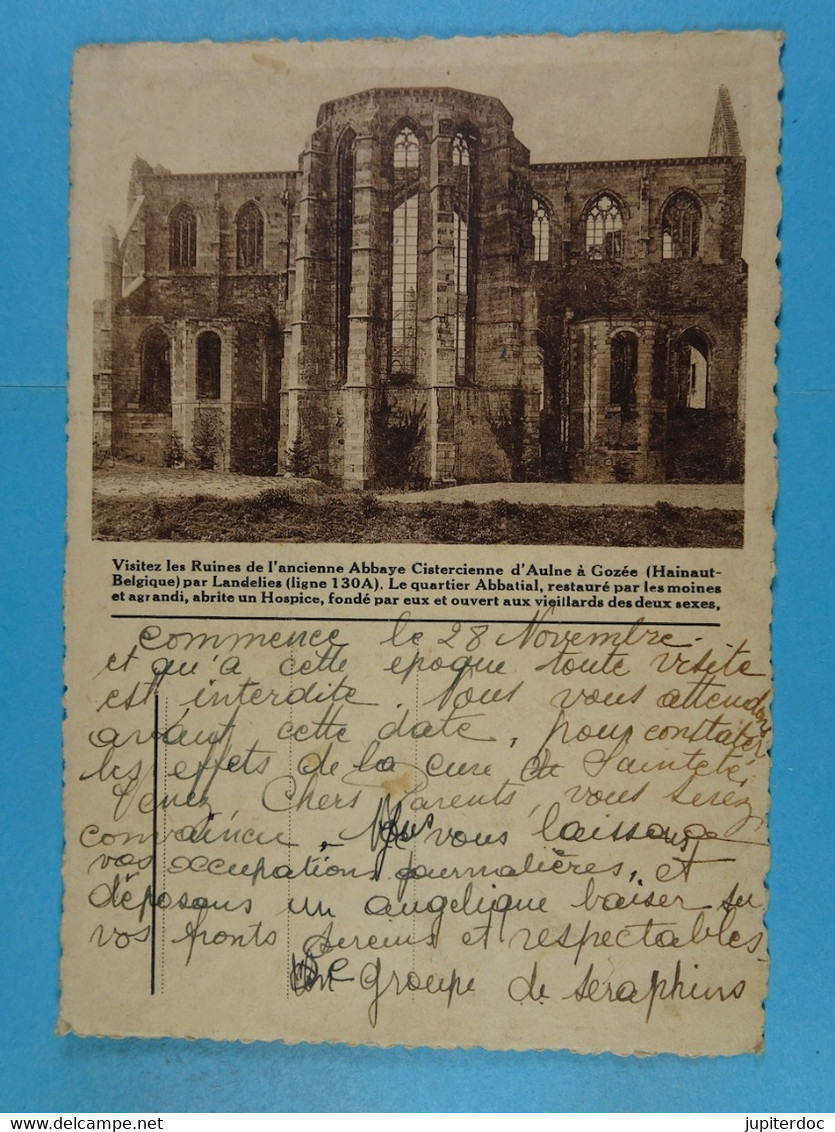 Visitez les Ruines de l'ancienne Abbaye Cistercienne d'Aulne à Gozée (Hainaut-
Belgique) par Landelies (ligne 130A). Le quartier Abbatial, restauré par les moines
et agrandi, abrite un Hospice, fondé par eux et ouvert aux vieillards des deux sexes,
commence le 28 Novembre.
et qu'à cette époque toute visite
est interdite. Nous vous attendons
avant cette date, pour constater
les effets de la cure de Sainteté.
Venez, Chers Parents, vous serez
convaincu. Nous vous laissons
vos occupations journalières, et
déposons un angélique baiser su
vos fronts sereins et respectables.
groupe de seraphins
delcampe.net
jupiterdoc